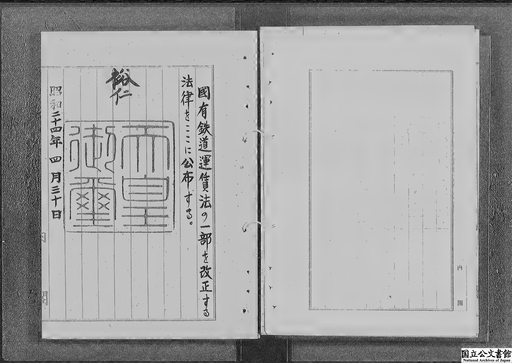 國有鉄道運賃法の一部を改正する
法律をここに公布する。
裕仁
天皇
御璽
昭和二十四年四月三十日
内閣
国立公文書館
National Archives of Japan